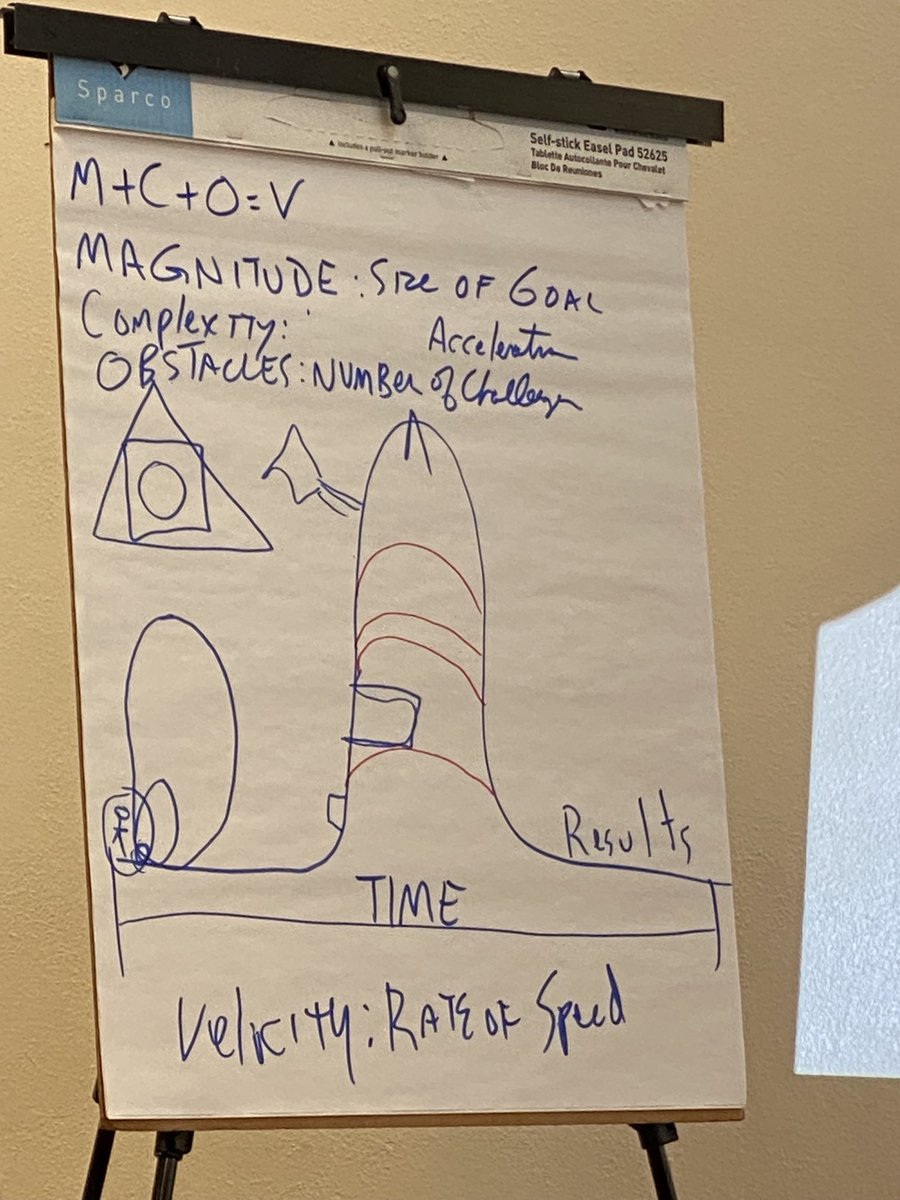 Sparco
▲ Includes a pull-out marker holder ▲
Self-stick Easel Pad 52625
Tablette Autocollante Pour Chevalet
Bloc De Reuniones
M+C+O=V
MAGNITUDE: Size OF GOAL
Complexity:
Acceleration
OBSTACLES: NUMBER of Challenges
Results
TIME
Velocity: RATE OF Speed